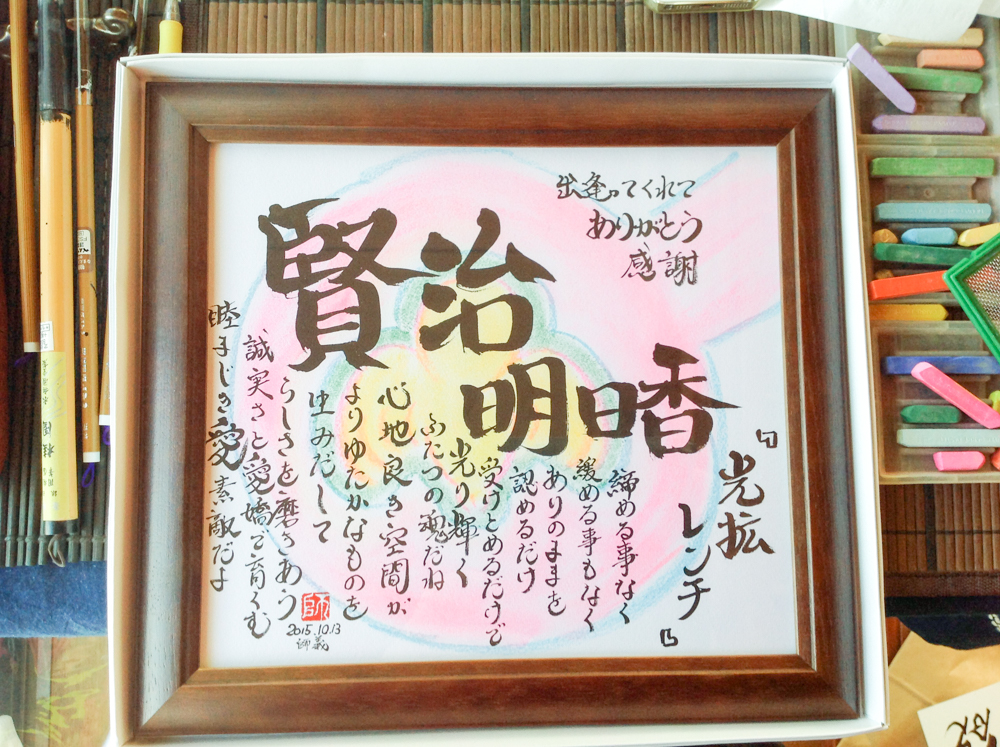 出逢ってくれて
ありがとう
感謝
賢治
明日香
『光拡
レンチ』
締める事なく
緩める事もなく
ありのままを
認めるだけ
受けとめるだけで
光り輝く
ふたつの魂だね
心地良き空間が
よりゆたかなものを
生みだして
らしさを磨きあう
誠実さと愛嬌で育くむ
睦まじき愛素敵だよ
師
2015.10.13